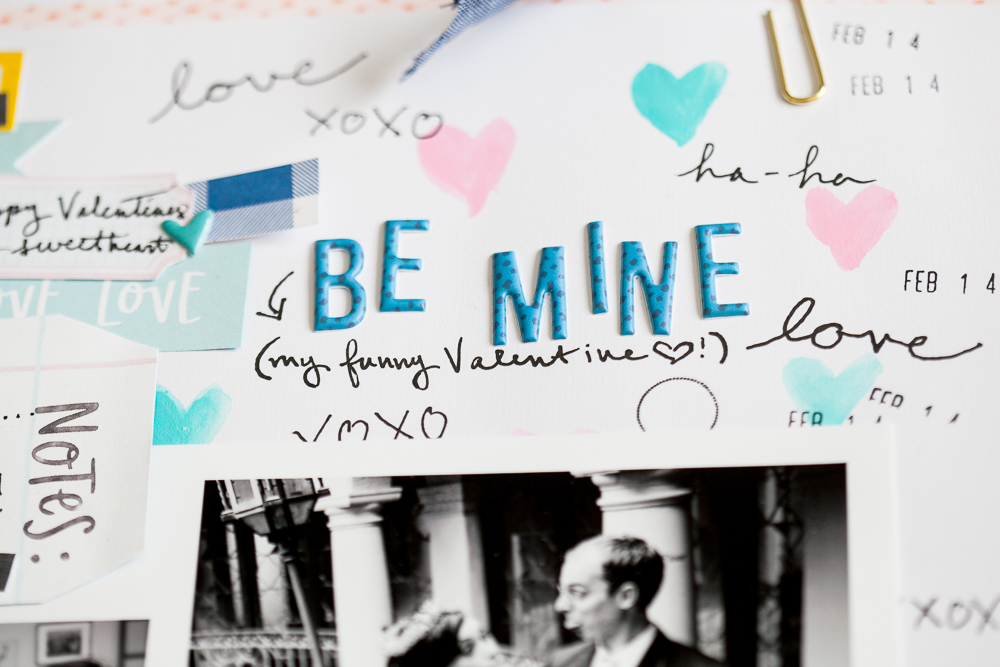 love
xoxo
FEB 14
FEB 14
ha-ha
Valentines
sweetheart
LOVE
BE MINE
FEB 14
(my funny Valentine ♡!)
love
FEB 14
FEB 14
xoxo
NOTES:
XOX